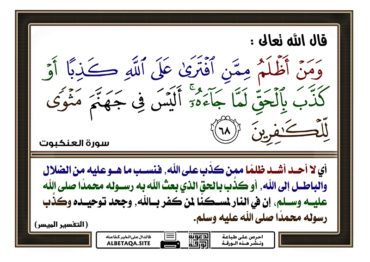 قال الله تعالى :
وَمَنْ أَظْلَمُ مِمَّنِ ٱفْتَرَىٰ عَلَى ٱللَّهِ كَذِبًا أَوْ
كَذَّبَ بِٱلْحَقِّ لَمَّا جَآءَهُۥٓ ۚ أَلَيْسَ فِى جَهَنَّمَ مَثْوًى
لِّلْكَٰفِرِينَ ٦٨
سورة العنكبوت
أي لا أحد أشد ظلمًا ممن كذب على الله، فنسب ما هو عليه من الضلال
والباطل إلى الله، أو كذب بالحق الذي بعث الله به رسوله محمدًا صلى الله
عليه وسلم، إن في النار لمسكنًا لمن كفر بالله، وجحد توحيده وكذب
رسوله محمدًا صلى الله عليه وسلم.
( التفسير الميسر )
احرص على طباعة
ونشر هذه الورقة
ALBETAQA.SITE